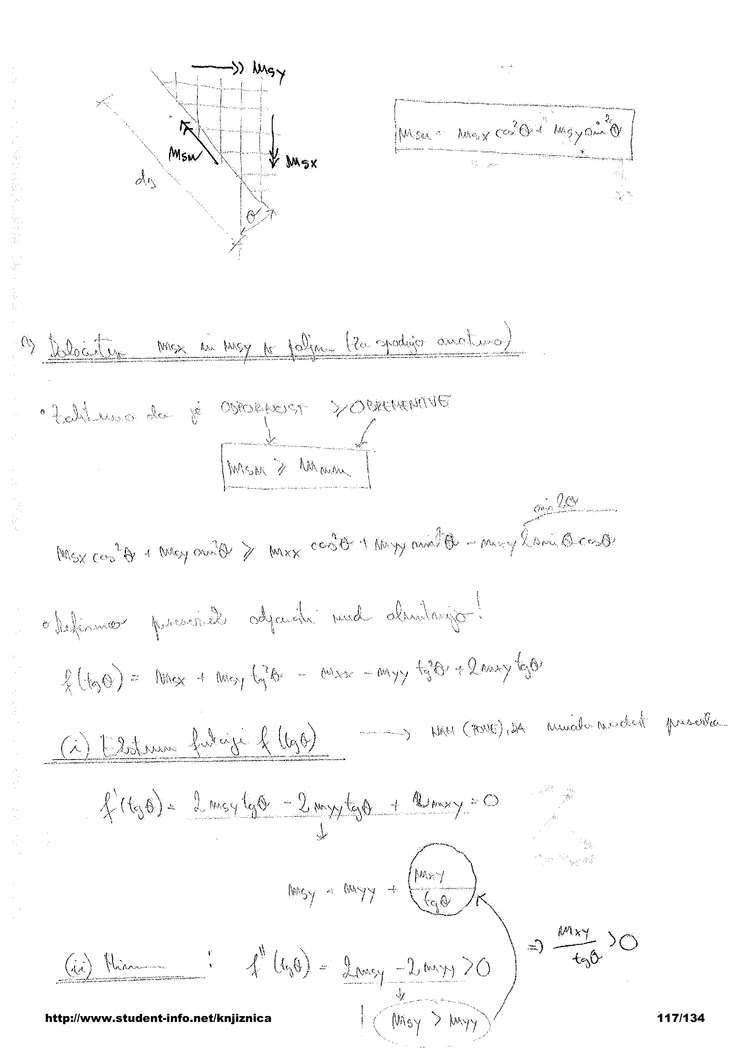 msy
msu = msx cos²θ + msy sin²θ
msu
msx
ds
θ
1) Določitev msx in msy (za spodnjo armaturo)
• Zahtevamo da je ODPORNOST ≥ OBREMENITVE
msu ≥ mnn
sin2θ
msx cos²θ + msy sin²θ ≥ mxx cos²θ + myy sin²θ - mxy 2 sinθcosθ
• Definiramo presežek med
f(tgθ) = msx + msy tg²θ - mxx - myy tg²θ + 2mxy tgθ
(i) Ekstrem funkcije f(tgθ) → NAM (POVE), DA presežka
f'(tgθ) = 2msy tgθ - 2myy tgθ + 2mxy = 0
msy = myy + mxy/tgθ
⇒ mxy/tgθ > 0
(ii) Minimum : f''(tgθ) = 2msy - 2myy > 0
msy > myy
http://www.student-info.net/knjiznica 117/134